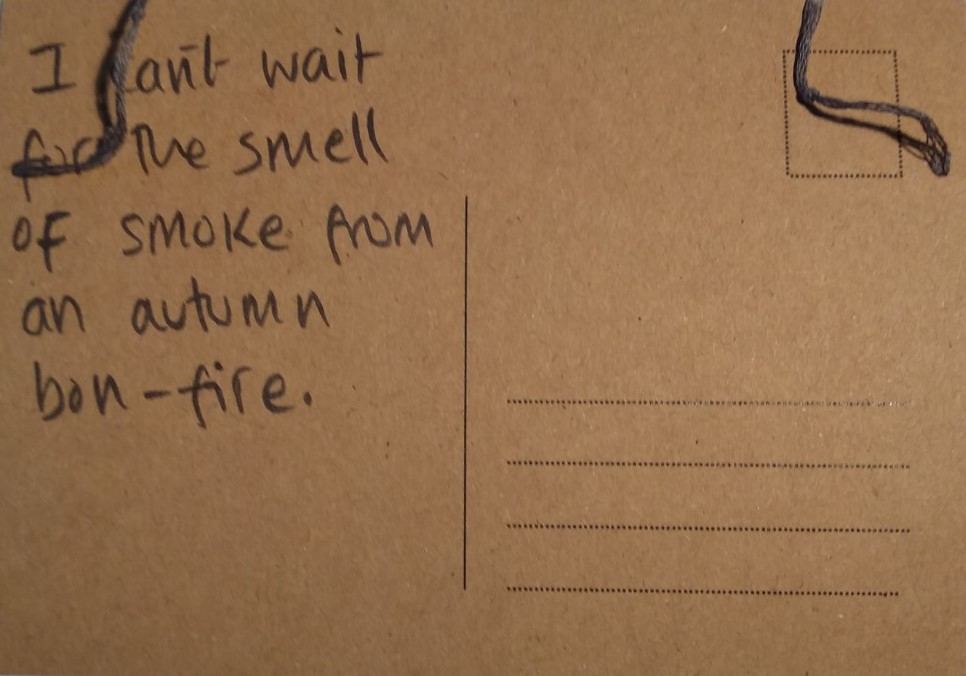 I can't wait
for the smell
of smoke from
an autumn
bon-fire.